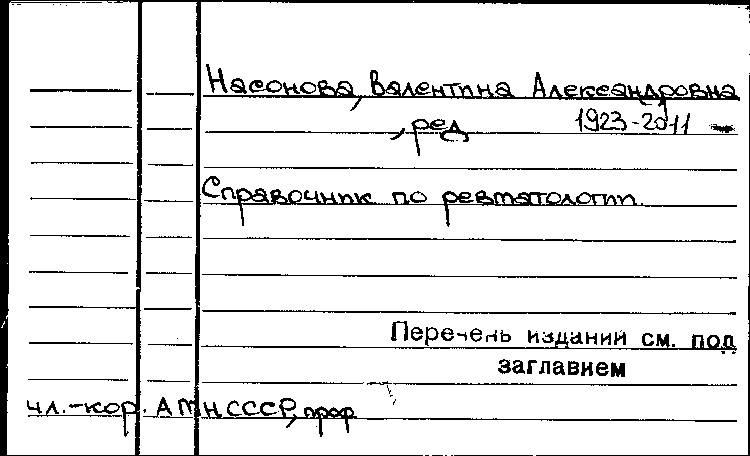 Насонова, Валентина Александровна
, ред 1923-2011
Справочник по ревматологии.
Перечень изданий см. под
заглавием
чл.-кор. АМН СССР, проф